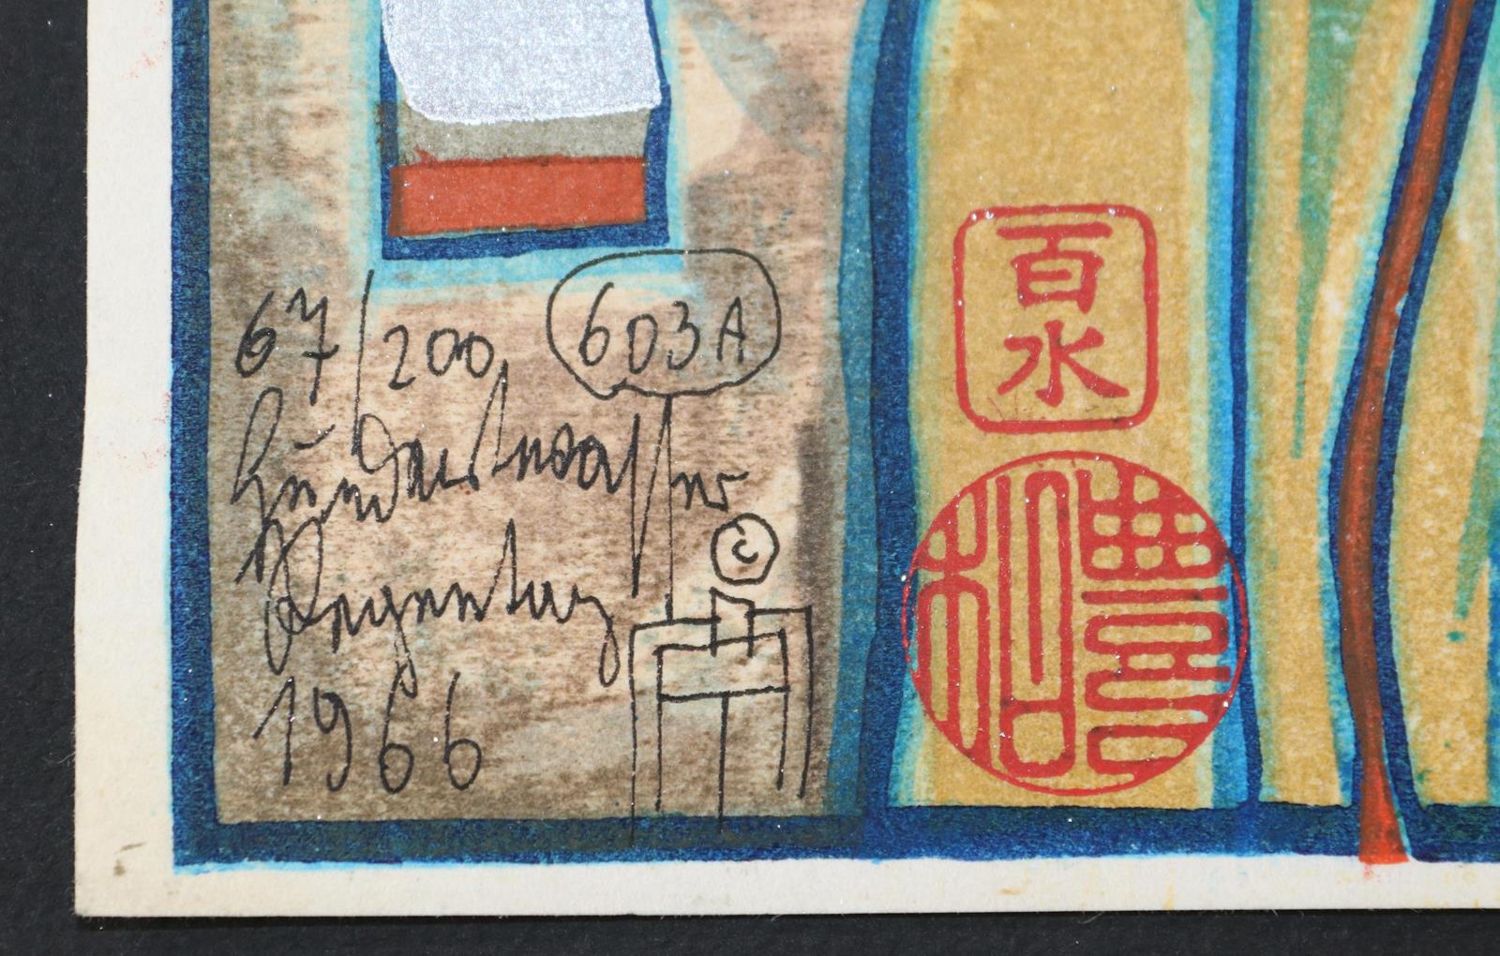 67/200 603A
Hundertwasser
©
Regentag
1966
百水
豐和